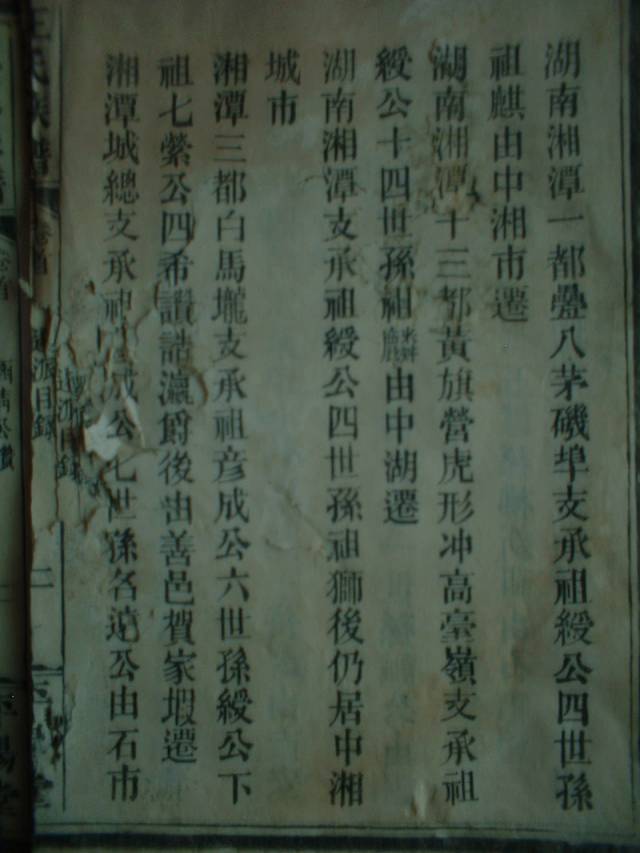 湖南湘潭一都疊八茅磯埠支承祖綬公四世孫
祖麒由中湘市遷
湖南湘潭十三都黃旗營虎形冲高臺嶺支承祖
綬公十四世孫祖麟由中湖遷
湖南湘潭支承祖綬公四世孫祖獅後仍居中湘
城市
湘潭三都白馬壠支承祖彥成公六世孫綬公下
祖七縈公四希讚誥瀛爵後由善邑賀家塅遷
湘潭城總支承祖成公七世孫各遠公由石市
氏族譜
卷首
派目錄
二